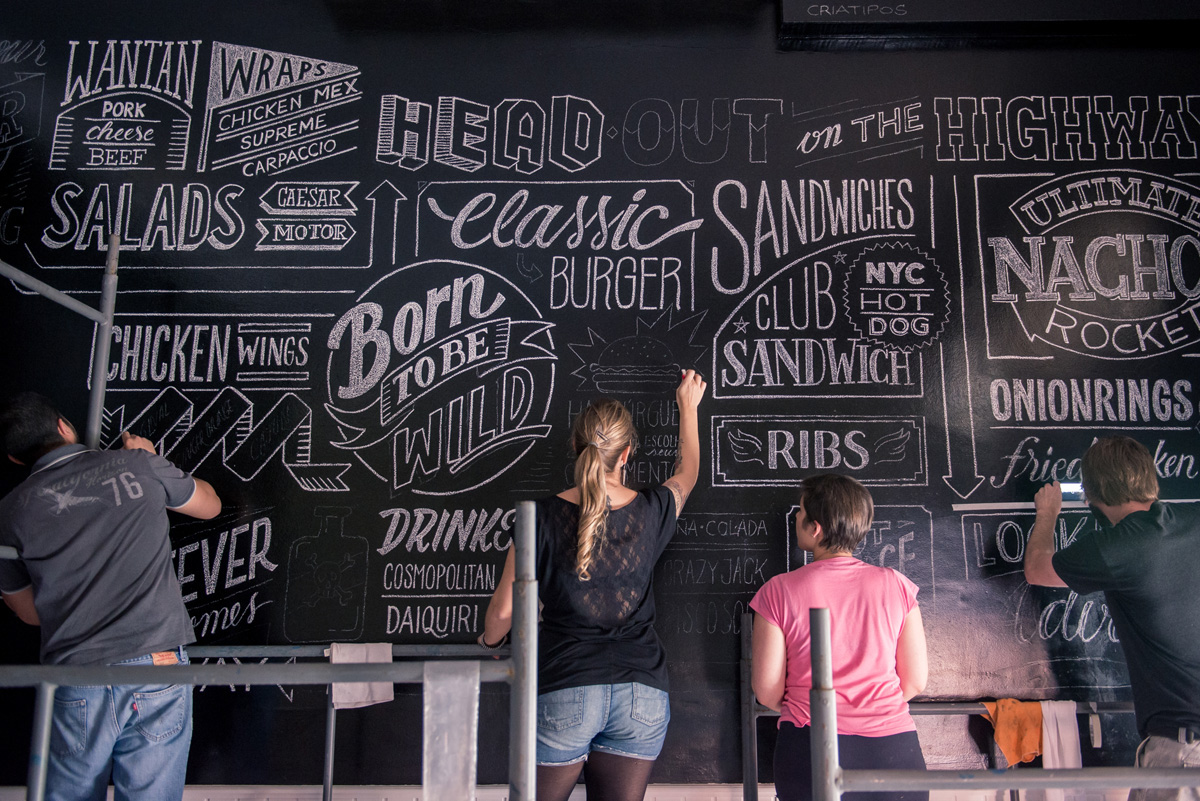 CRIATIPOS
WANTAN
PORK
cheese
BEEF
WRAPS
CHICKEN MEX
SUPREME
CARPACCIO
HEAD·OUT on THE HIGHWAY
SALADS
CAESAR
MOTOR
Classic
BURGER
SANDWICHES
CLUB
SANDWICH
NYC
HOT
DOG
ULTIMATE
NACHO
ROCKET
CHICKEN WINGS
Born
TO BE
WILD
RIBS
ONIONRINGS
76
DRINKS
COSMOPOLITAN
DAIQUIRI
COLADA
CRAZY JACK